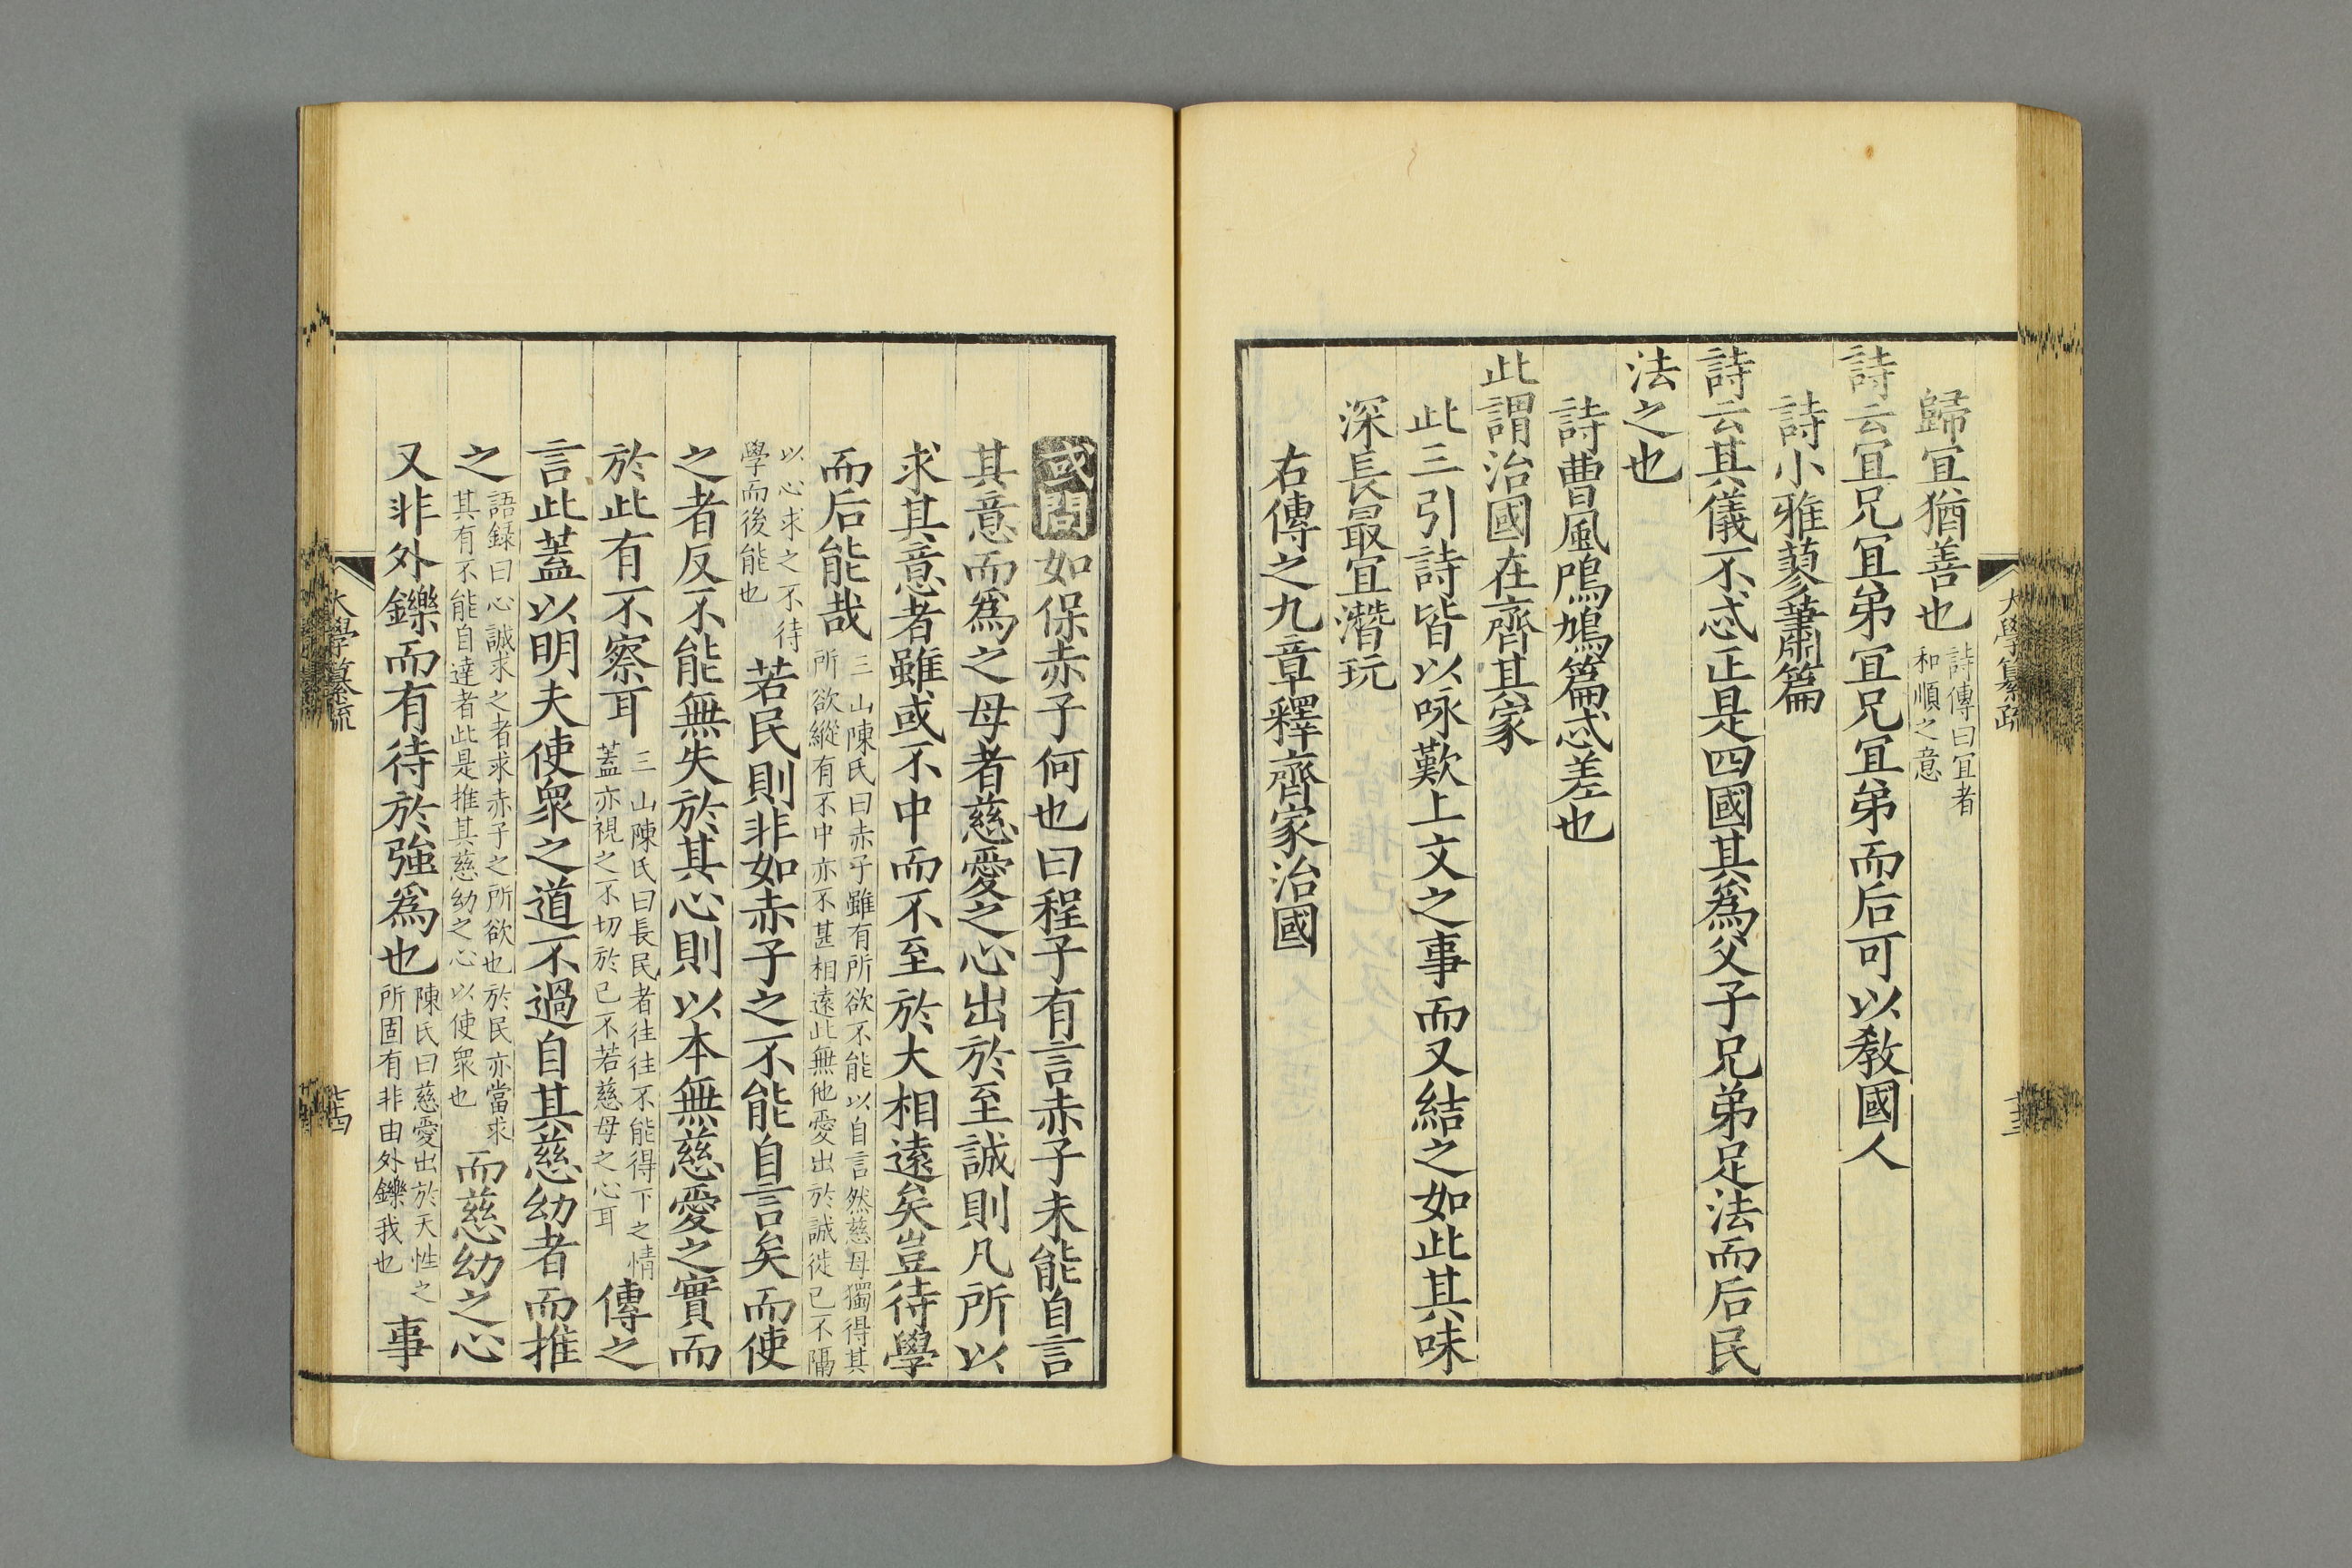 歸宜猶善也詩傳曰宜者和順之意
詩云宜兄宜弟宜兄宜弟而后可以教國人
詩小雅蓼蕭篇
詩云其儀不忒正是四國其爲父子兄弟足法而后民
法之也
詩曹風鳲鳩篇忒差也
此謂治國在齊其家
此三引詩皆以咏歎上文之事而又結之如此其味
深長最宜潛玩
右傳之九章釋齊家治國
大學纂疏
或問如保赤子何也曰程子有言赤子未能自言
其意而爲之母者慈愛之心出於至誠則凡所以
求其意者雖或不中而不至於大相遠矣豈待學
而后能哉三山陳氏曰赤子雖有所欲不能以自言然慈母獨得其所欲縱有不中亦不甚相遠此無他愛出於誠徙已不隔
以心求之不待學而後能也若民則非如赤子之不能自言矣而使
之者反不能無失於其心則以本無慈愛之實而
於此有不察耳三山陳氏曰長民者往往不能得下之情蓋亦視之不切於己不若慈母之心耳傳之
言此蓋以明夫使衆之道不過自其慈幼者而推
之語録曰心誠求之者求赤子之所欲也於民亦當求其有不能自達者此是推其慈幼之心以使衆也而慈幼之心
又非外鑠而有待於強爲也陳氏曰慈愛出於天性之所固有非由外鑠我也事
大學纂疏